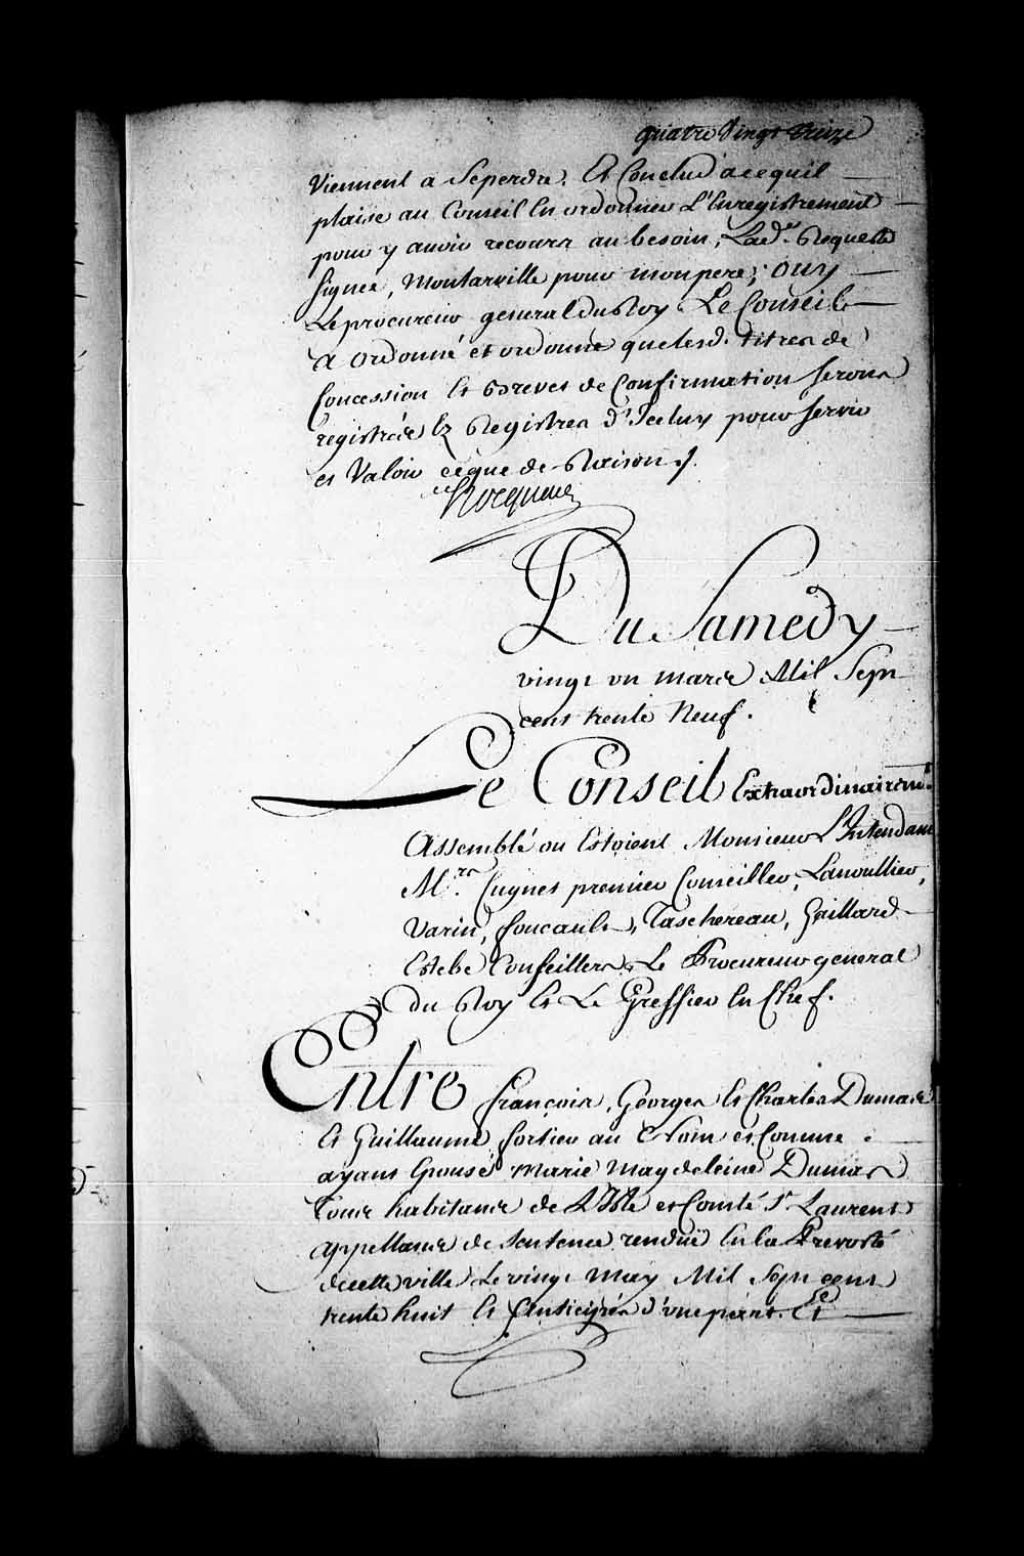 quatre Vingt treize
Viennent a Seperdre. Et Conclud a cequil
plaise au Conseil En ordonner L'Enregistrement
pour y avoir recours au besoin, Lad.e Requeste
signée, Montarville pour mon pere; ouy
Le procureur general du Roy. Le Conseil
a ordonné et ordonne que lesd. titres de
Concession Et Brevet de Confirmation seront
registrés Ez Registres d'Iceluy pour servir
et Valoir ceque de Raison ./.
Hocquart
Du Samedy
vingt un mars Mil Sept
cent trente Neuf.
Le Conseil Extraordinairem.t
Assemblé ou Estoient Monsieur L'Intendant
M.rs Cugnet premier Conseiller, Lanoullier,
Varin, foucault, Taschereau, Gaillard
Estebe Conseillers, Le Procureur general
du Roy Et Le Greffier En Chef.
Entre françois, Georges Et Charles Dumas
Et Guillaume fortier au Nom et Comme
ayant Epousé Marie Magdeleine Dumas
Tous habitants de L'Isle et Comté S.t Laurent
appellants de sentence renduë En la Prevosté
decette ville Le vingt May Mil Sept cent
trente huit Et anticipés d'une part. Et